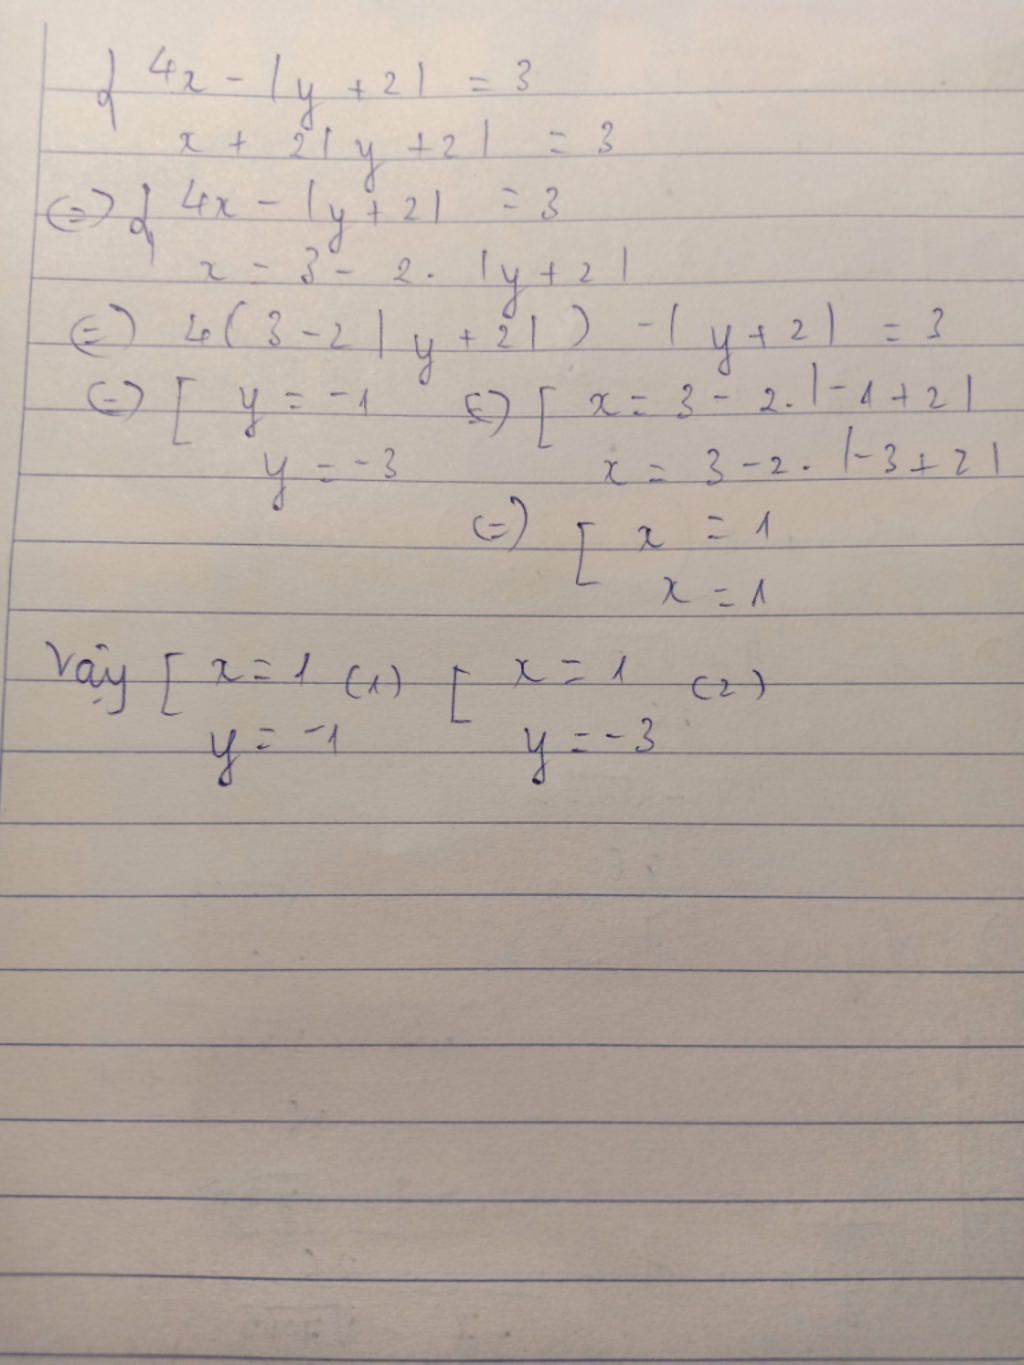 { 4x - |y + 2| = 3
x + 2|y + 2| = 3
(=) { 4x - |y + 2| = 3
x = 3 - 2. |y + 2|
(=) 4(3 - 2|y + 2|) - |y + 2| = 3
(=) [ y = -1 (=) [ x = 3 - 2. |-1 + 2|
y = -3 x = 3 - 2. |-3 + 2|
(=) [ x = 1
x = 1
Vậy [ x = 1 (1) [ x = 1 (2)
y = -1 y = -3